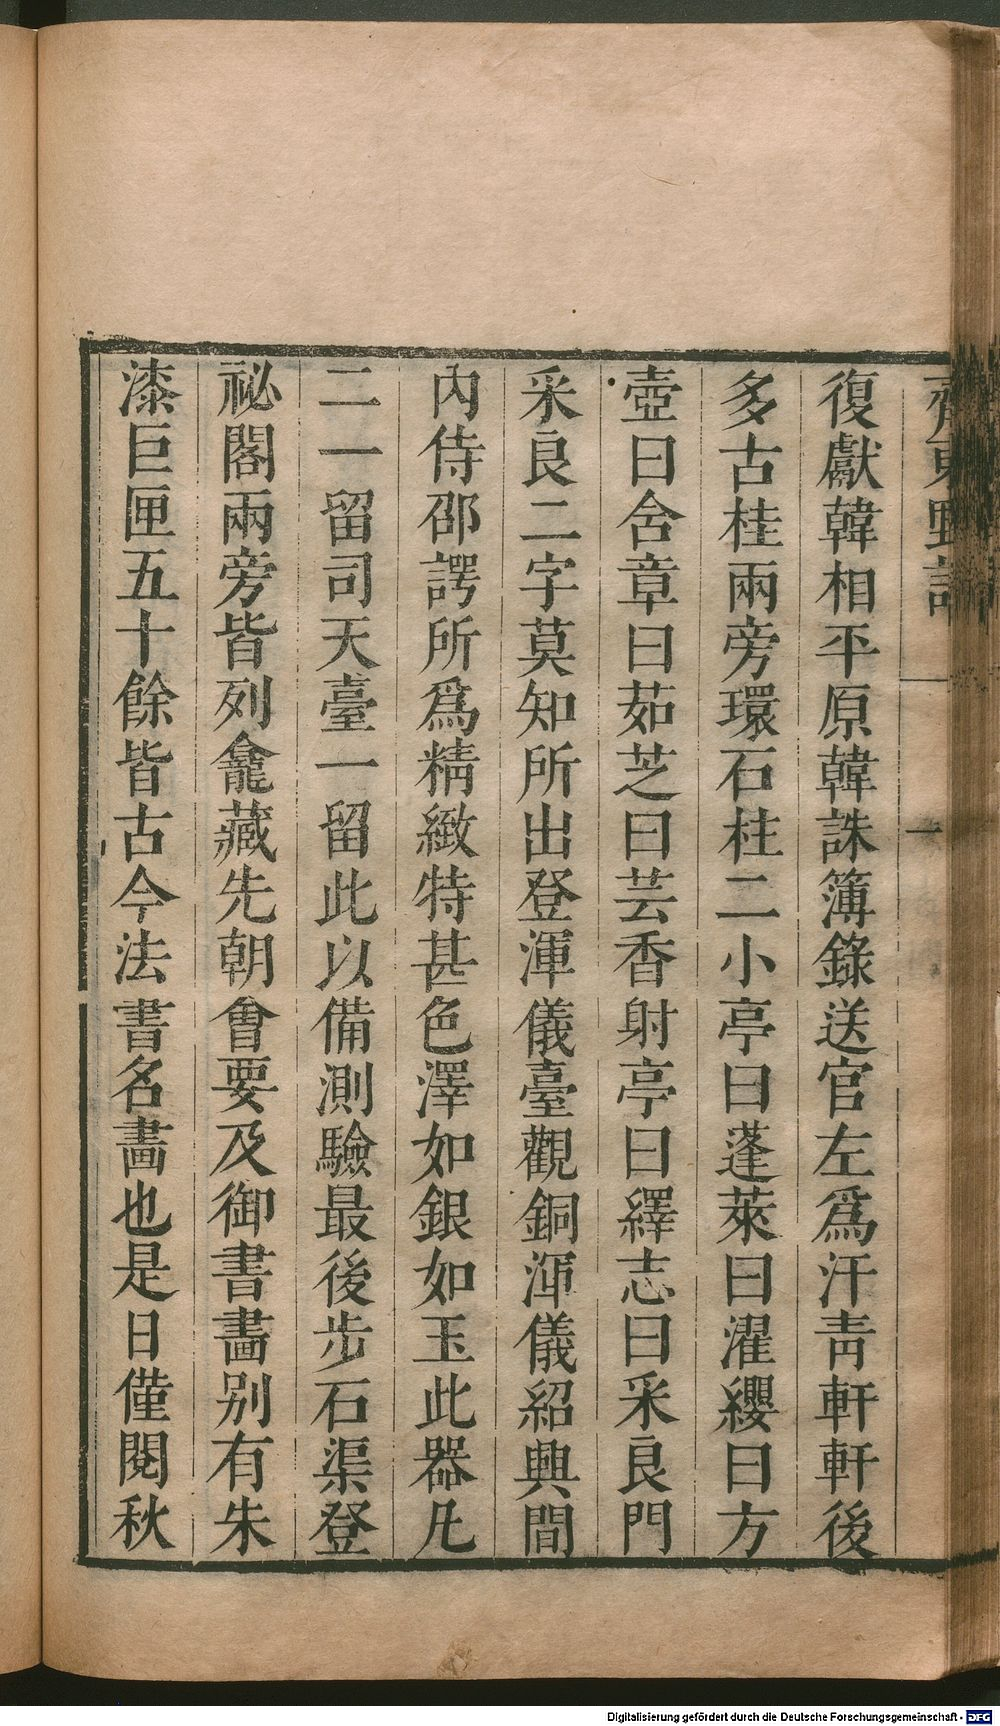 齊東野語
一
復獻韓相平原韓誅簿錄送官左爲汗靑軒軒後
多古桂兩旁環石柱二小亭曰蓬萊曰濯纓曰方
壺曰含章曰茹芝曰芸香射亭曰繹志曰采良門
采良二字莫知所出登渾儀臺觀銅渾儀紹興間
內侍邵諤所爲精緻特甚色澤如銀如玉此器凡
二一留司天臺一留此以備測驗最後步石渠登
祕閣兩旁皆列龕藏先朝會要及御書畵别有朱
漆巨匣五十餘皆古今法書名畵也是日僅閱秋
Digitalisierung gefördert durch die Deutsche Forschungsgemeinschaft - DFG